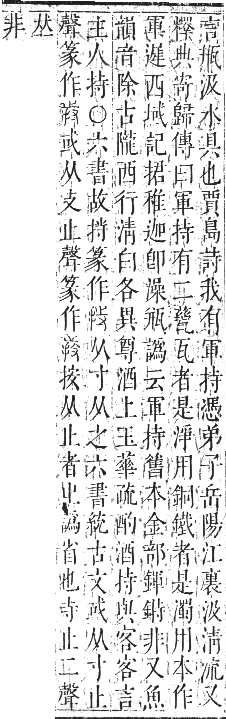 言瓶汲水具也賈島詩我有軍持憑弟子岳陽江裏汲淸流又
釋典寄歸傳曰軍持有二甆瓦者是淨用銅鐵者是濁用本作
軍遟西域記捃稚迦卽澡瓶譌云軍持舊本金部鍕鍗非又魚
韻音除古隴西行淸白各異尊酒上玉華疏酌酒持與客客言
主人持○六書故持篆作𢺵或从支止聲篆作𢻫按从止者㞢譌省也寺止二聲
聲篆作
𠀤
非